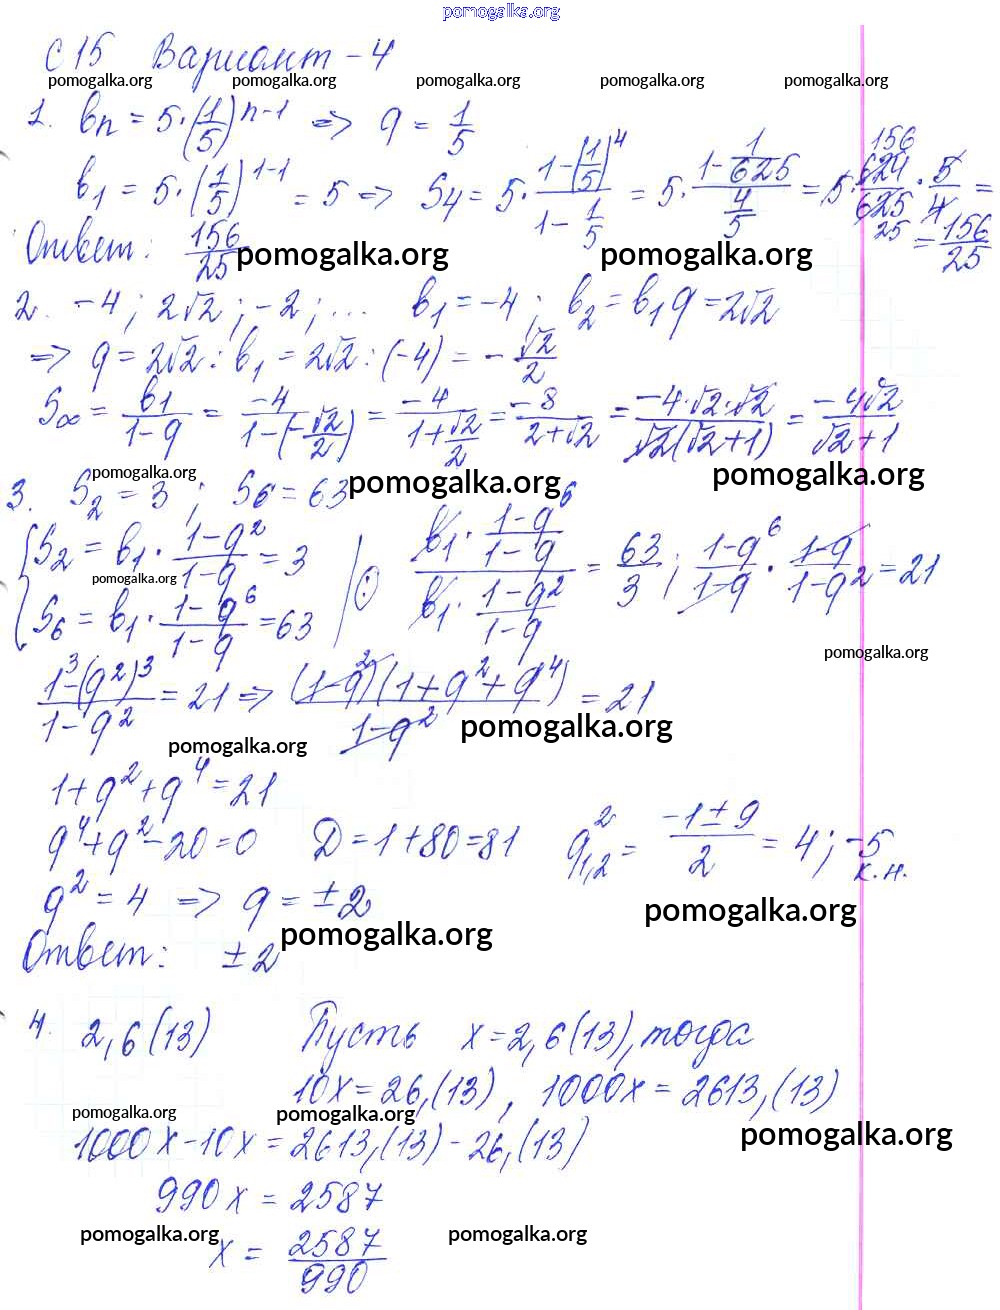 pomogalka.org
С 15 Вариант - 4
pomogalka.org pomogalka.org pomogalka.org pomogalka.org pomogalka.org
1. bn = 5·(1/5)^(n-1) => q = 1/5
b₁ = 5·(1/5)^(1-1) = 5 => S₄ = 5·(1-(1/5)⁴)/(1-1/5) = 5·(1-1/625)/(4/5) = 5·624/625·5/4 = 156 25
= 156/25
Ответ: 156/25
pomogalka.org pomogalka.org
2. -4; 2√2; -2; ... b₁ = -4; b₂ = b₁q = 2√2
=> q = 2√2 : b₁ = 2√2 : (-4) = -√2/2
S∞ = b₁/(1-q) = -4/(1-(-√2/2)) = -4/(1+√2/2) = -8/(2+√2) = -4·√2·√2/(√2(√2+1)) = -4√2/(√2+1)
pomogalka.org pomogalka.org pomogalka.org
3. S₂ = 3; S₆ = 63
{S₂ = b₁·(1-q²)/(1-q) = 3
pomogalka.org
S₆ = b₁·(1-q⁶)/(1-q) = 63 | : (b₁·(1-q⁶)/(1-q))/(b₁·(1-q²)/(1-q)) = 63/3; (1-q⁶)/(1-q)·(1-q)/(1-q²) = 21
pomogalka.org
(1³-(q²)³)/(1-q²) = 21 => (1-q²)(1+q²+q⁴)/(1-q²) = 21
pomogalka.org pomogalka.org
1+q²+q⁴ = 21
q⁴+q²-20=0 D = 1+80=81 q²₁,₂ = (-1±9)/2 = 4; -5
к.н.
q² = 4 => q = ±2
pomogalka.org pomogalka.org
Ответ: ±2
4. 2,6(13) Пусть x=2,6(13), тогда
10x = 26,(13), 1000x = 2613,(13)
pomogalka.org pomogalka.org pomogalka.org
1000x - 10x = 2613,(13) - 26,(13)
990x = 2587
pomogalka.org pomogalka.org
x = 2587/990